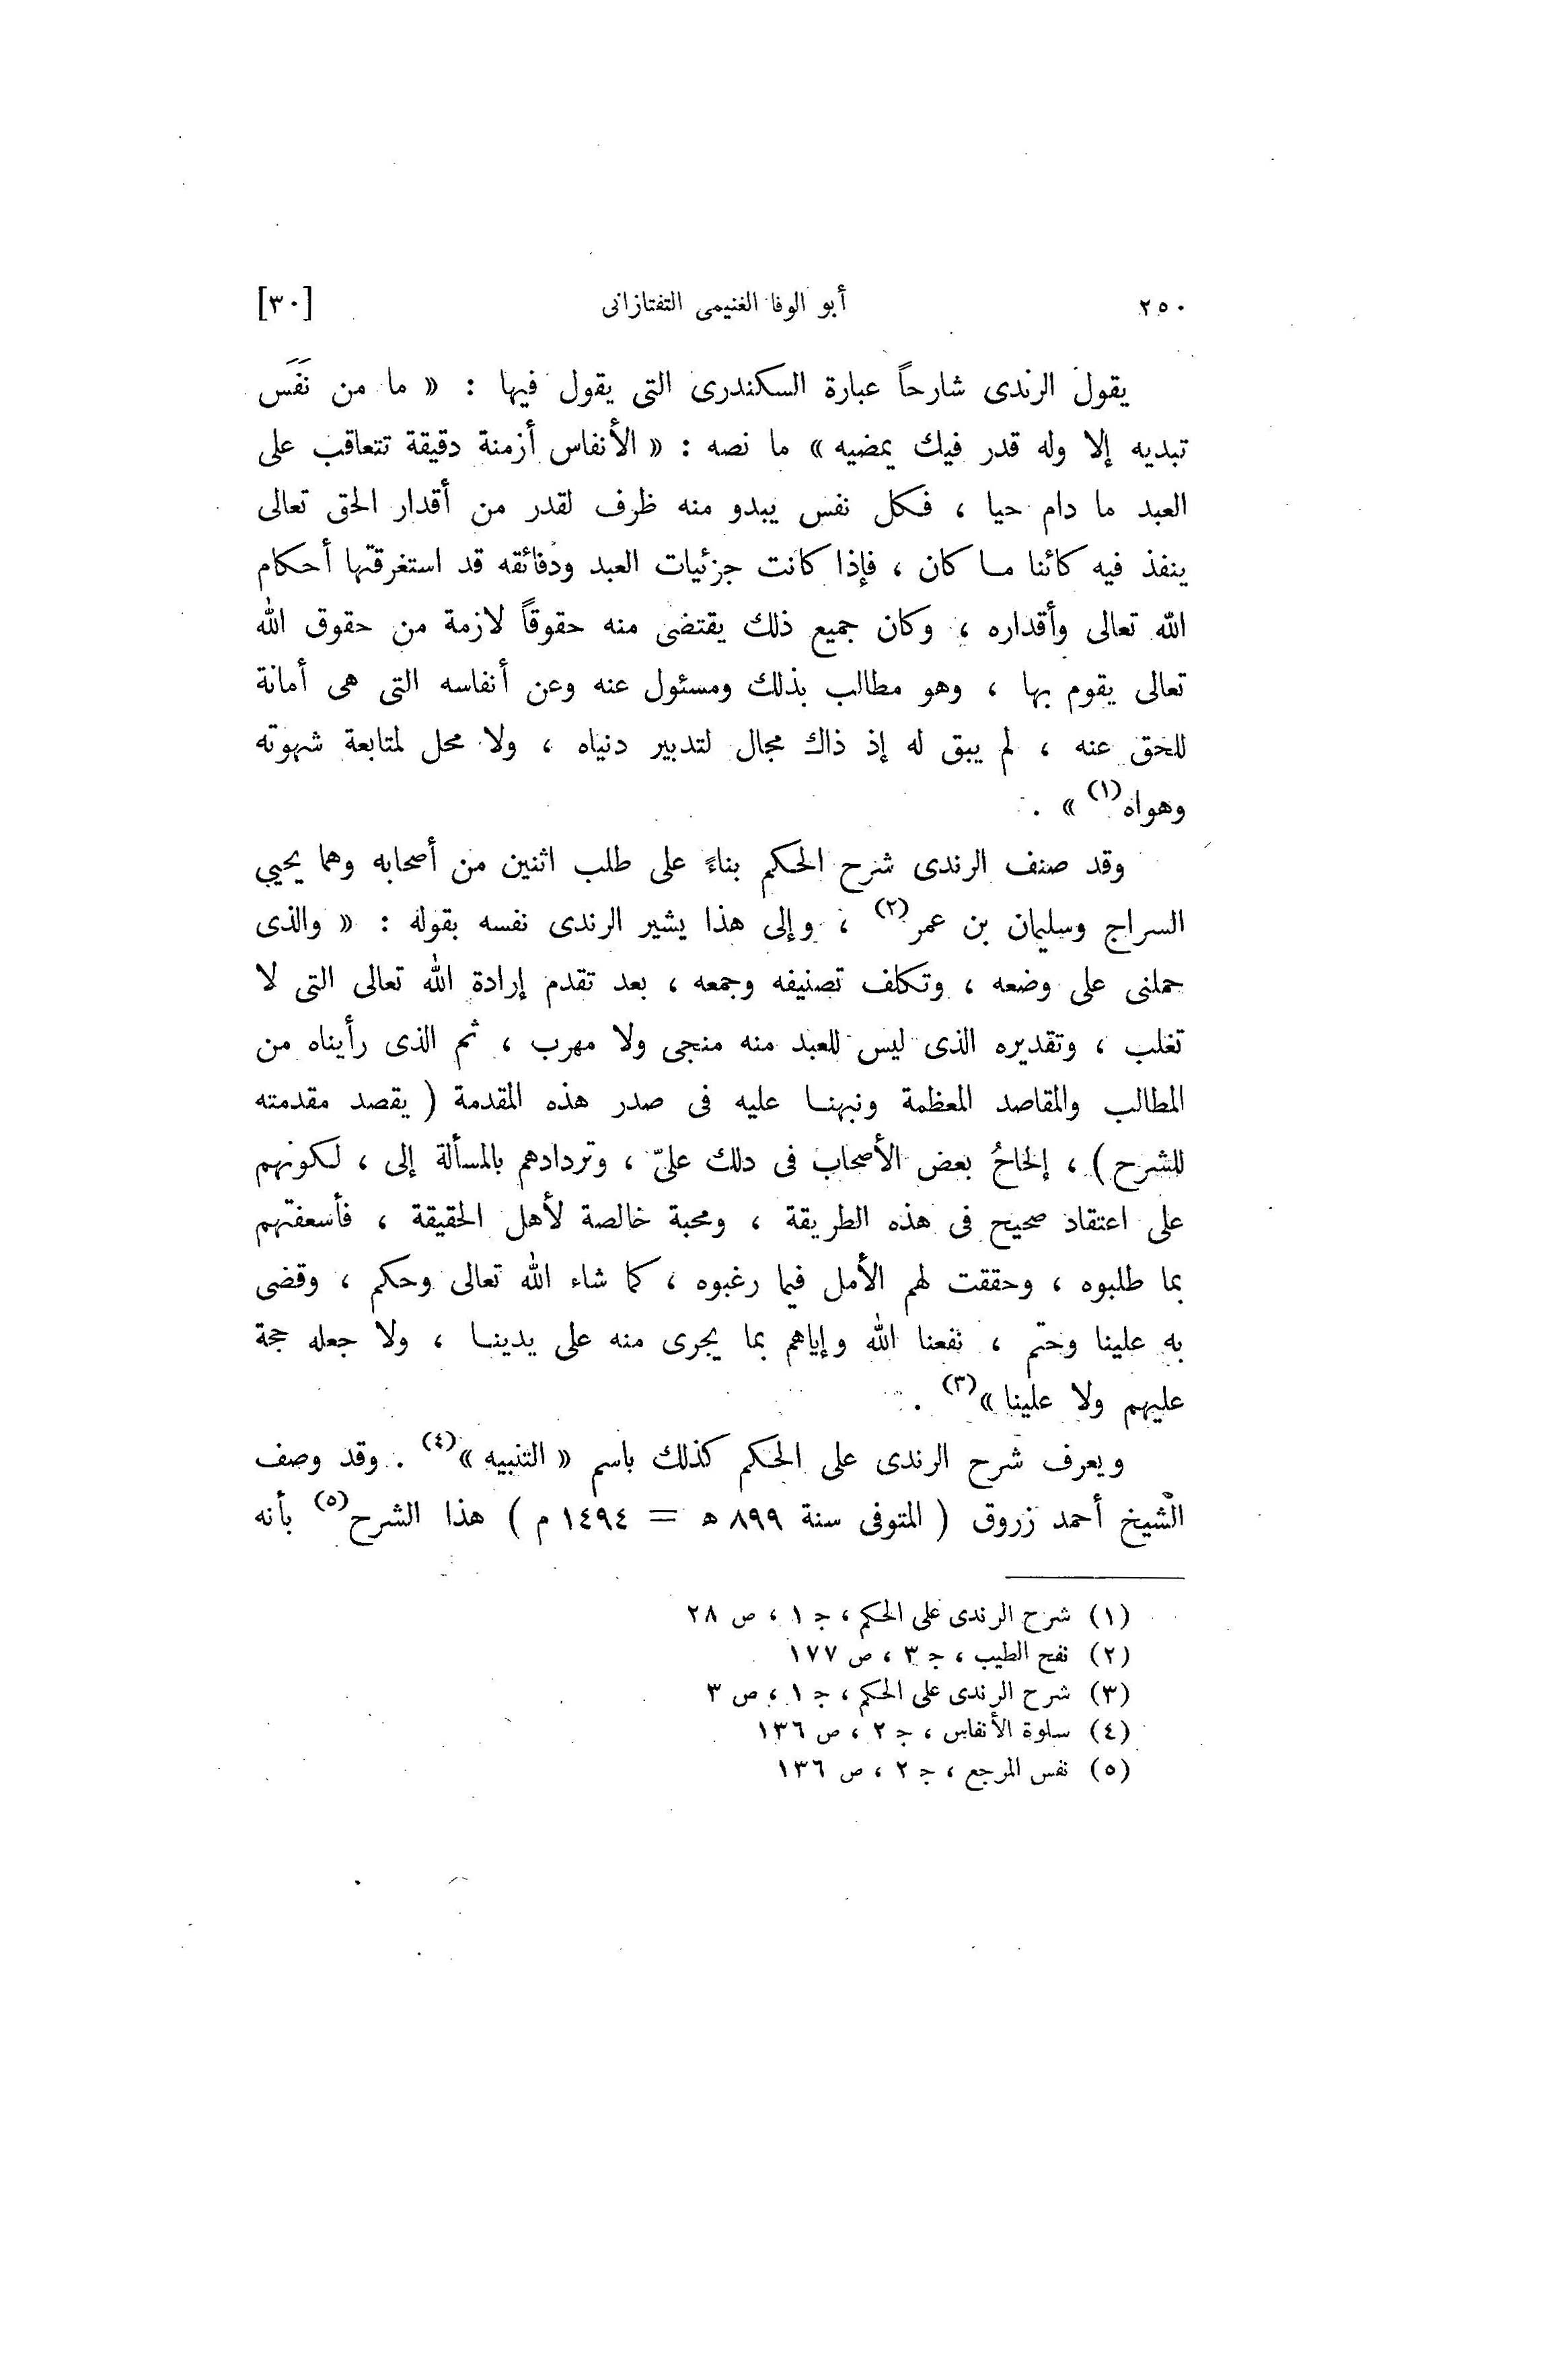 ٢٥٠ أبو الوفا الغنيمى التفتازانى [٣٠]
يقول الرندى شارحاً عبارة السكندرى التى يقول فيها : « ما من نَفَس
تبديه إلا وله قدر فيك يمضيه » ما نصه : « الأنفاس أزمنة دقيقة تتعاقب على
العبد ما دام حيا ، فكل نفس يبدو منه ظرف لقدر من أقدار الحق تعالى
ينفذ فيه كائنا ما كان ، فإذا كانت جزئيات العبد ودقائقه قد استغرقتها أحكام
الله تعالى وأقداره ، وكان جميع ذلك يقتضى منه حقوقاً لازمة من حقوق الله
تعالى يقوم بها ، وهو مطالب بذلك ومسئول عنه وعن أنفاسه التى هى أمانة
للحق عنه ، لم يبق له إذ ذاك مجال لتدبير دنياه ، ولا محل لمتابعة شهوته
وهواه(١) » .
وقد صنف الرندى شرح الحكم بناءً على طلب اثنين من أصحابه وهما يحيي
السراج وسليمان بن عمر(٢) ، وإلى هذا يشير الرندى نفسه بقوله : « والذى
حملنى على وضعه ، وتكلف تصنيفه وجمعه ، بعد تقدم إرادة الله تعالى التى لا
تغلب ، وتقديره الذى ليس للعبد منه منجى ولا مهرب ، ثم الذى رأيناه من
المطالب والمقاصد المعظمة ونبهنا عليه فى صدر هذه المقدمة ( يقصد مقدمته
للشرح ) ، إلحاحُ بعض الأصحاب فى دلك علىّ ، وتردادهم بالمسألة إلى ، لكونهم
على اعتقاد صحيح فى هذه الطريقة ، ومحبة خالصة لأهل الحقيقة ، فأسعفتهم
بما طلبوه ، وحققت لهم الأمل فيما رغبوه ، كما شاء الله تعالى وحكم ، وقضى
به علينا وحتم ، نفعنا الله وإياهم بما يجرى منه على يدينا ، ولا جعله حجة
عليهم ولا علينا »(٣) .
ويعرف شرح الرندى على الحكم كذلك باسم « التنبيه »(٤) . وقد وصف
الشيخ أحمد زروق ( المتوفى سنة ٨٩٩ ه = ١٤٩٤ م ) هذا الشرح(٥) بأنه
(١) شرح الرندى على الحكم ، ج ١ ، ص ٢٨
(٢) نفح الطيب ، ج ٣ ، ص ١٧٧
(٣) شرح الرندى على الحكم ، ج ١ ، ص ٣
(٤) سلوة الأنفاس ، ج ٢ ، ص ١٣٦
(٥) نفس المرجع ، ج ٢ ، ص ١٣٦